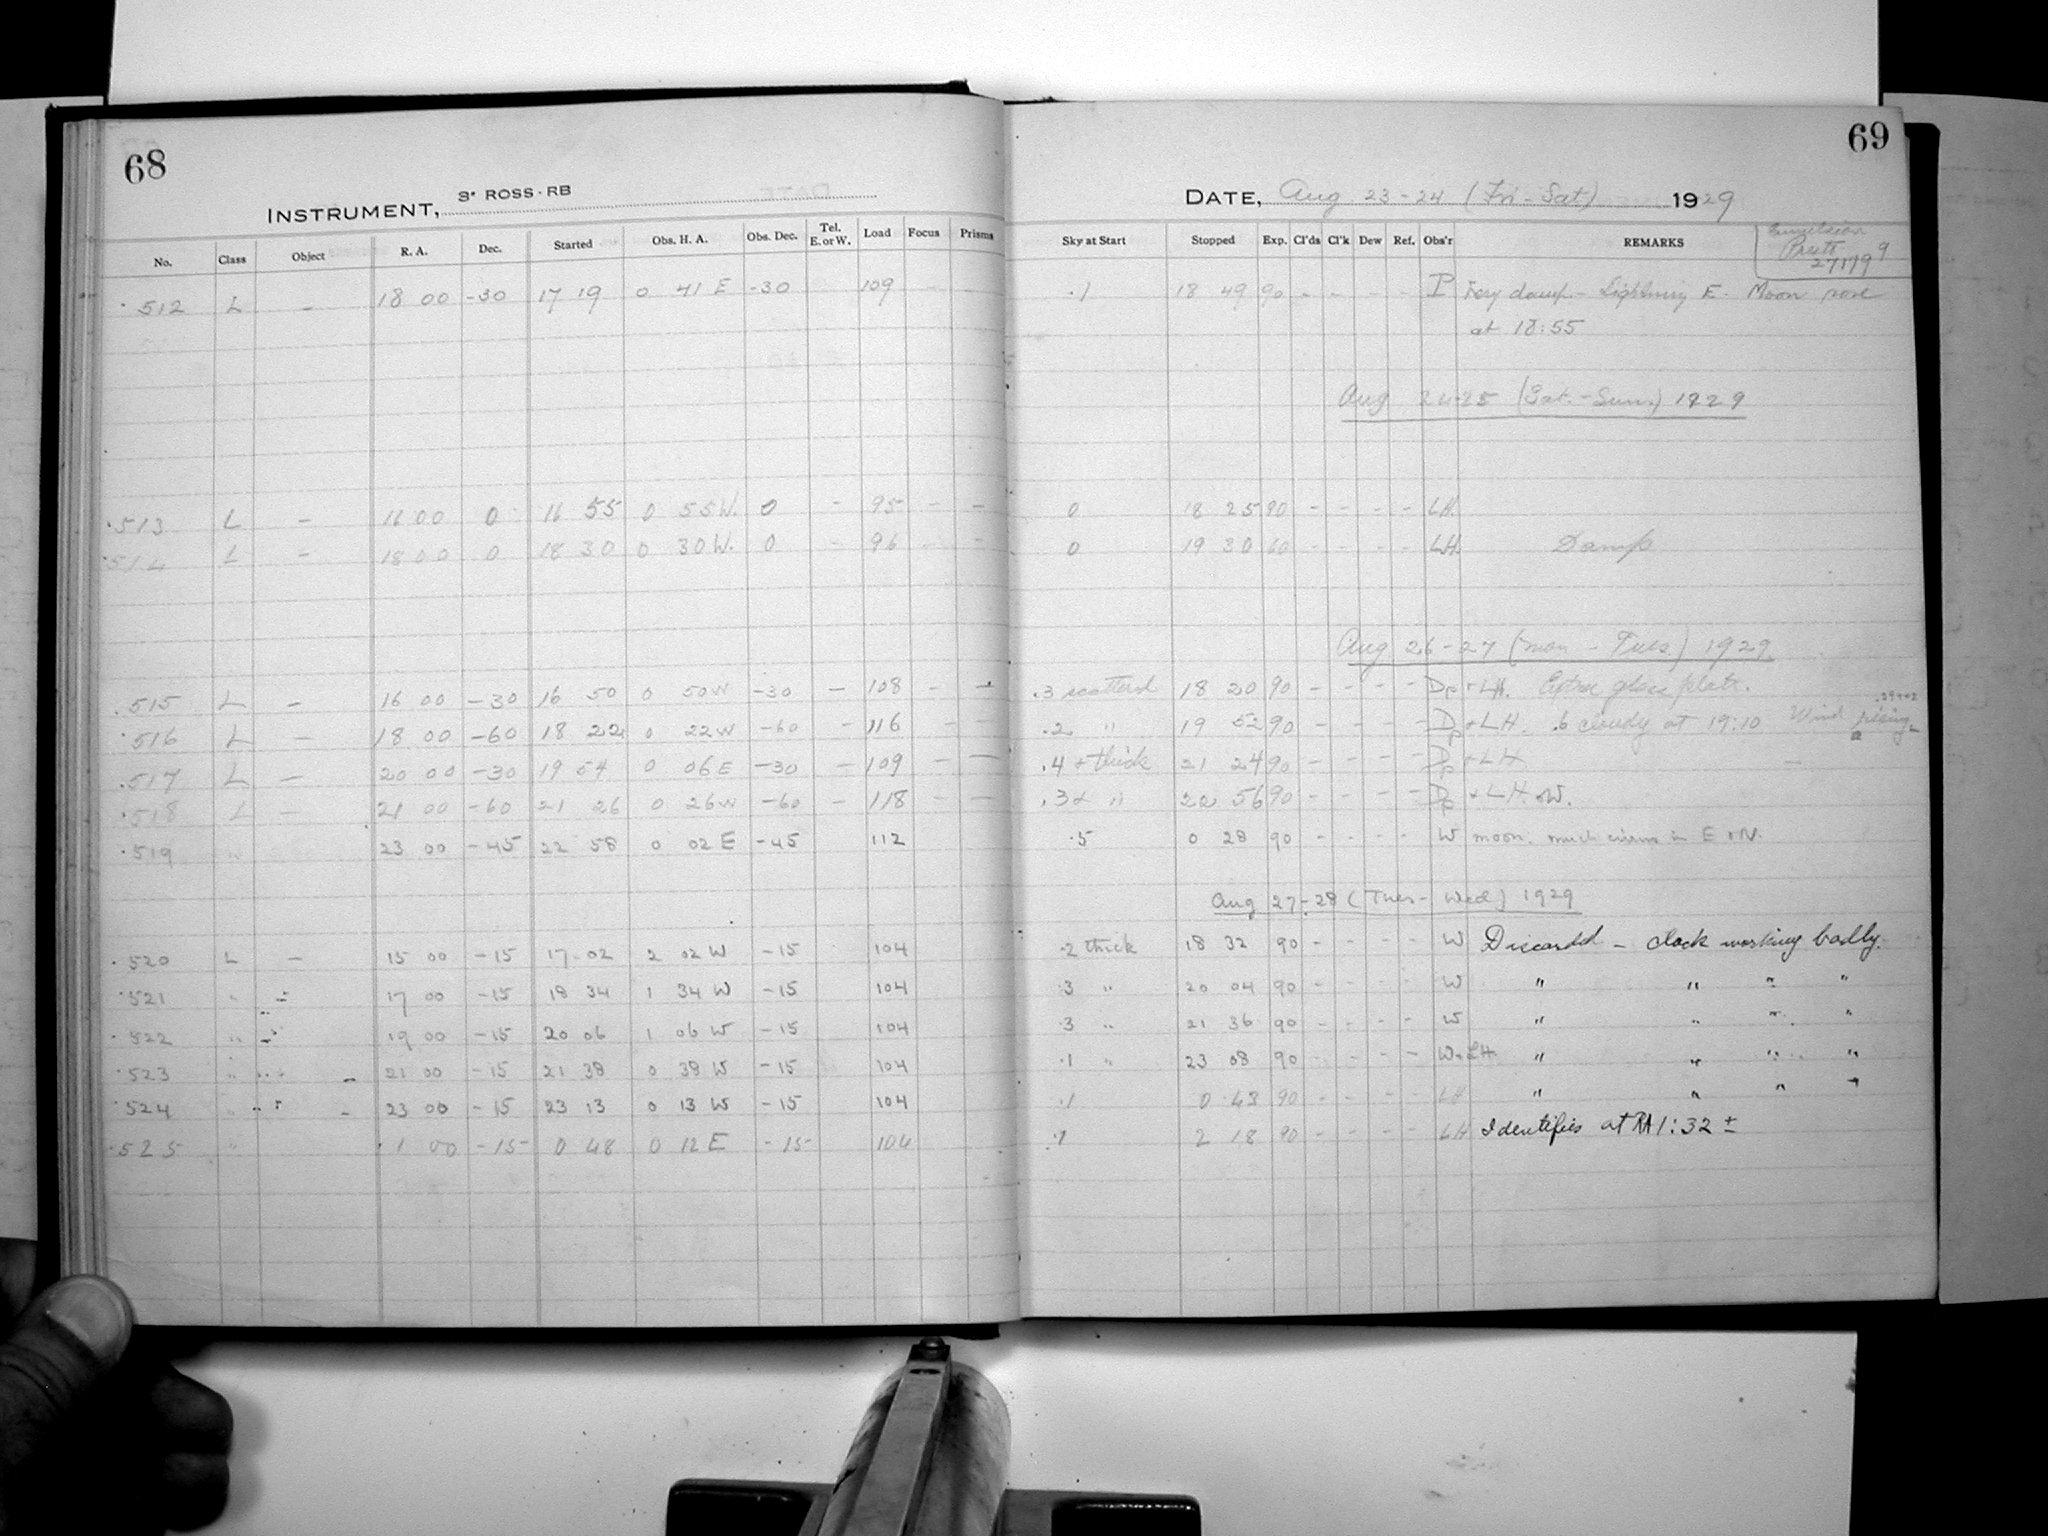 68
INSTRUMENT, 3" ROSS-RB
No. Class Object R. A. Dec. Started Obs. H. A. Obs. Dec. Tel. E. or W. Load Focus Prisms
·512 L – 18 00 -30 17 19 0 41 E -30 109
·513 L – 16 00 0 16 55 0 55 W. 0 – 95 – –
·514 L – 18 00 0 18 30 0 30 W. 0 – 96 – –
·515 L – 16 00 -30 16 50 0 50 W -30 – 108 – –
·516 L – 18 00 -60 18 22 0 22 W -60 – 116 – –
·517 L – 20 00 -30 19 54 0 06 E -30 – 109 – –
·518 L – 21 00 -60 21 26 0 26 W -60 – 118 – –
·519 " 23 00 -45 22 58 0 02 E -45 112
·520 L – 15 00 -15 17 02 2 02 W -15 104
·521 " 17 00 -15 18 34 1 34 W -15 104
·522 " 19 00 -15 20 06 1 06 W -15 104
·523 " 21 00 -15 21 38 0 38 W -15 104
·524 " 23 00 -15 23 13 0 13 W -15 104
·525 " 1 00 -15 0 48 0 12 E -15 104
69
DATE, Aug 23-24 (Fri-Sat) 1929
Emulsion
27179
Sky at Start Stopped Exp. Cl'ds Cl'k Dew Ref. Obs'r REMARKS
·1 18 49 90 – – – – P Very damp – Lightning E. Moon rose
at 18:55
Aug 24-25 (Sat.-Sun.) 1929
0 18 25 90 – – – – LH.
0 19 30 60 – – – – LH. Damp
Aug 26-27 (Mon – Tues) 1929
.3 scattered 18 20 90 – – – – Dp + LH. Extra glass plate.
.2 " 19 52 90 – – – – Dp + LH. .6 cloudy at 19:10 Wind rising
.4 + thick 21 24 90 – – – – Dp + LH
.3 + " 22 56 90 – – – – Dp + LH. + W.
·5 0 28 90 – – – – W moon. much cirrus in E + N.
Aug 27-28 (Tues – Wed) 1929
·2 thick 18 32 90 – – – – W Discarded – clock working badly.
·3 " 20 04 90 – – – – W " " " "
·3 " 21 36 90 – – – – W " " " "
·1 " 23 08 90 – – – – W + LH. " " " "
·1 0 43 90 – – – – LH " " " "
·1 2 18 90 – – – – LH Identifies at RA 1:32 ±